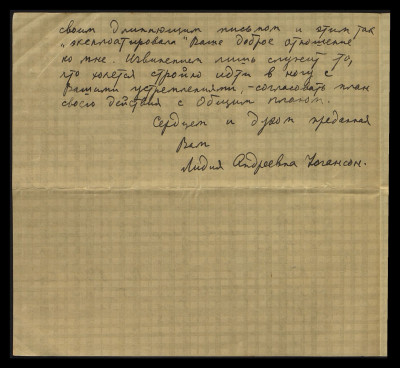 своим длиннющим письмом и этим так
"эксплоатировала" Ваше доброе отношение
ко мне. Извинением лишь служит то,
что хочется стройно идти в ногу с
Вашими устремлениями, - согласовать план
своего действия с Общим планом.
Сердцем и духом преданная
Вам
Лидия Андреевна